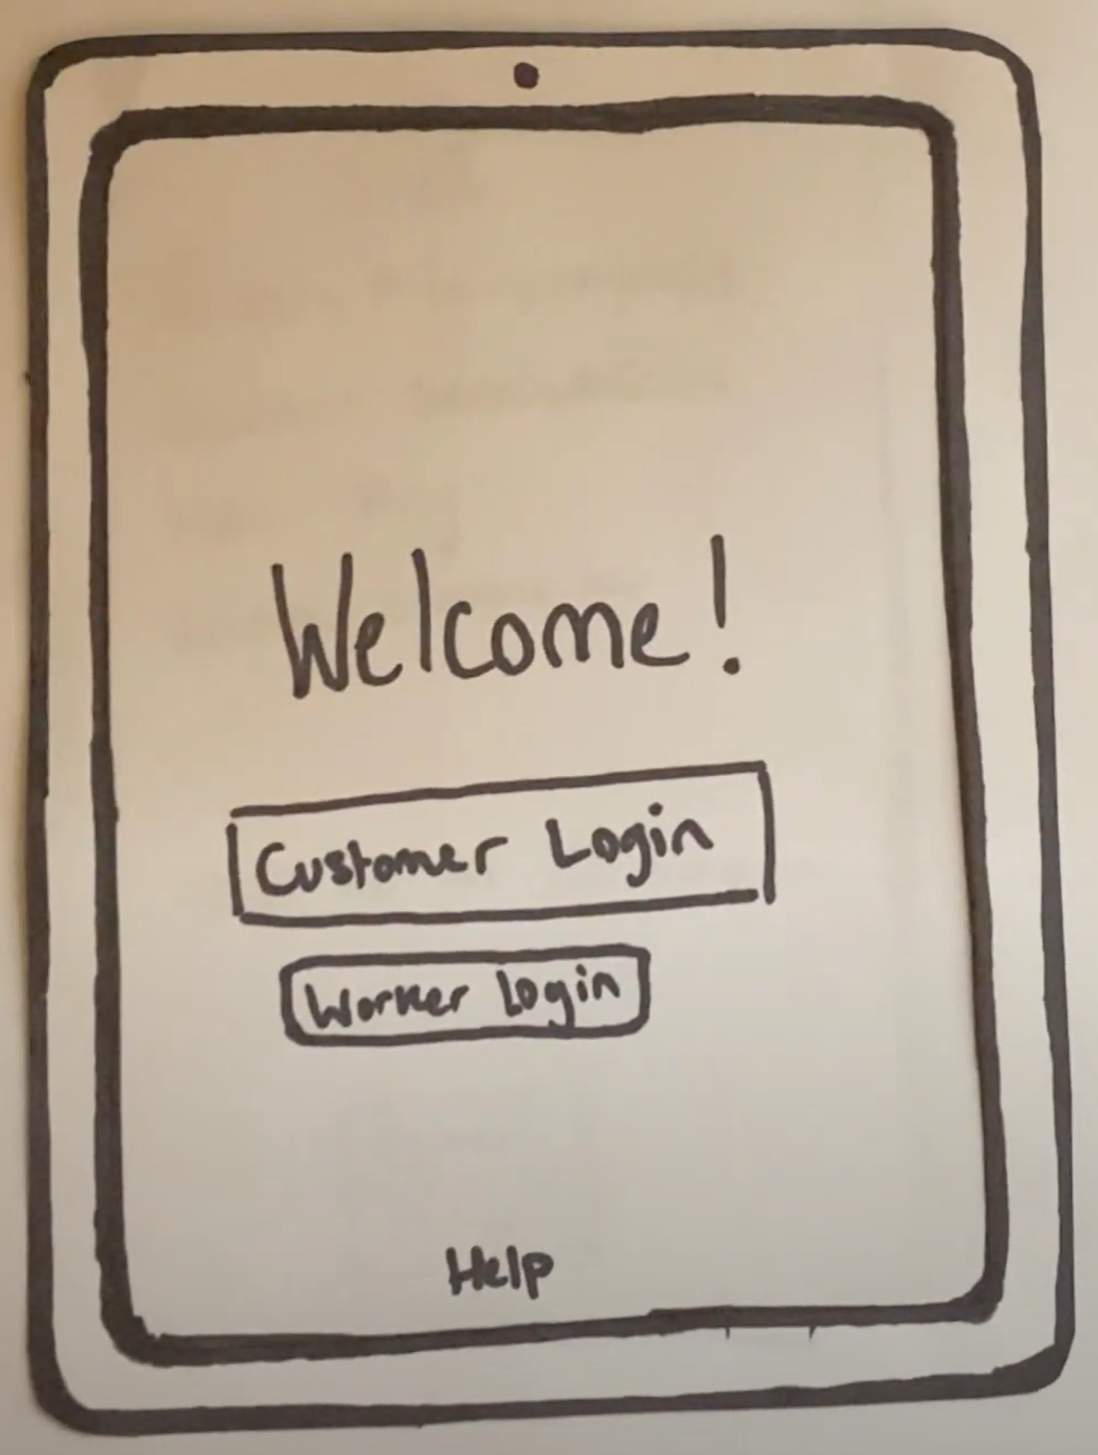 Welcome!
Customer Login
Worker Login
Help